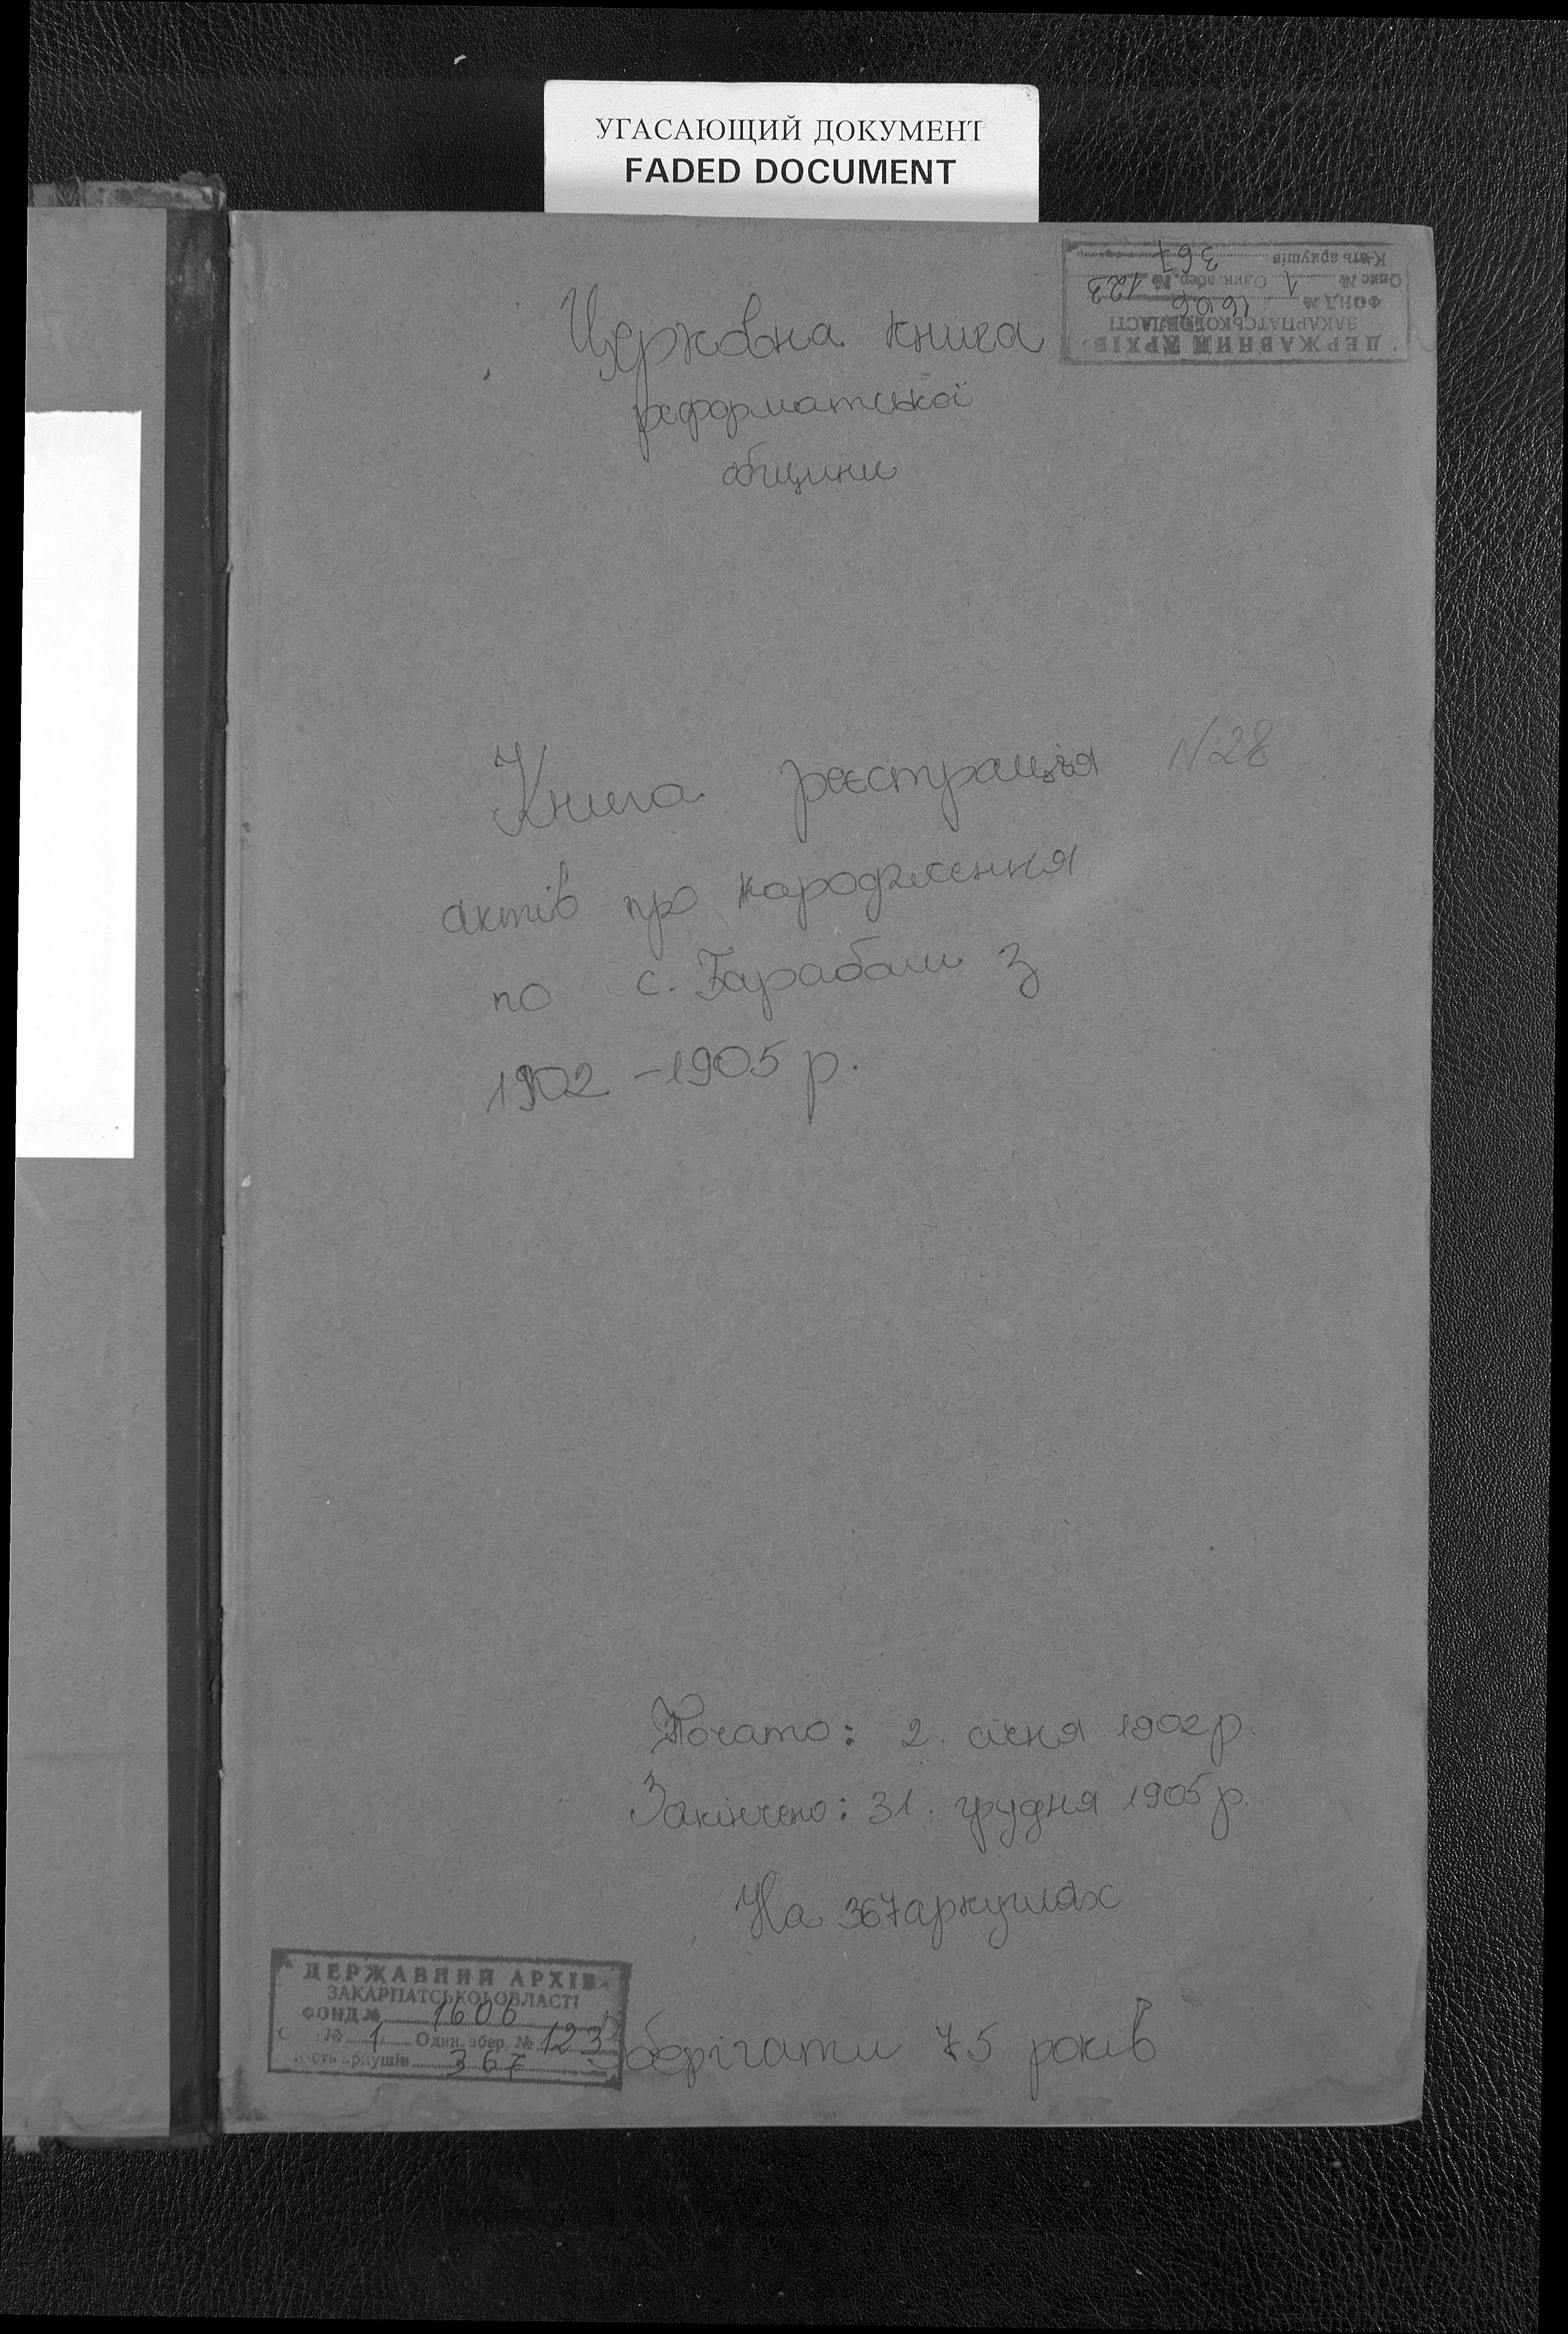 УГАСАЮЩИЙ ДОКУМЕНТ
FADED DOCUMENT
ДЕРЖАВНИЙ АРХІВ
ЗАКАРПАТСЬКОЇ ОБЛАСТІ
ФОНД № 1606
Опис № 1 Один. збер. № 123
К-сть аркушів 367
Церковна книга
реформатської
общини
Книга реєстрація N28
актів про народження
по с. Барабаш з
1902 – 1905 р.
Почато: 2. січня 1902 р.
Закінчено: 31. грудня 1905 р.
На 367 аркушах
ДЕРЖАВНИЙ АРХІВ
ЗАКАРПАТСЬКОЇ ОБЛАСТІ
ФОНД № 1606
№ 1 Один. збер. № 123
К-сть аркушів 367
Зберігати 75 років